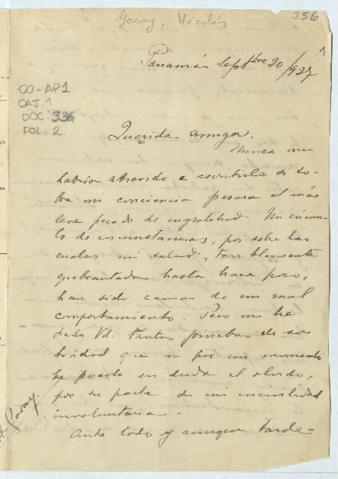 Garay, Nicolás
356
Panamá Septbre 20/927
CO-AP1
CAJ. 1
DOC 336
FOL. 2
Querida amiga,
Nunca me
habría atrevido a escribirle si so-
bre mi conciencia pesara el más
leve pecado de ingratitud. Un cúmu-
lo de circunstancias, por sobre las
cuales mi salud, terriblemente
quebrantada hasta hace poco,
han sido causa de mi mal
comportamiento. Pero me ha
dado Vd. tantas pruebas de su
bondad que ni por un momento
he puesto en duda el olvido,
por su parte de mi incivilidad
involuntaria.
Ante todo y aunque tarde-
Garay.